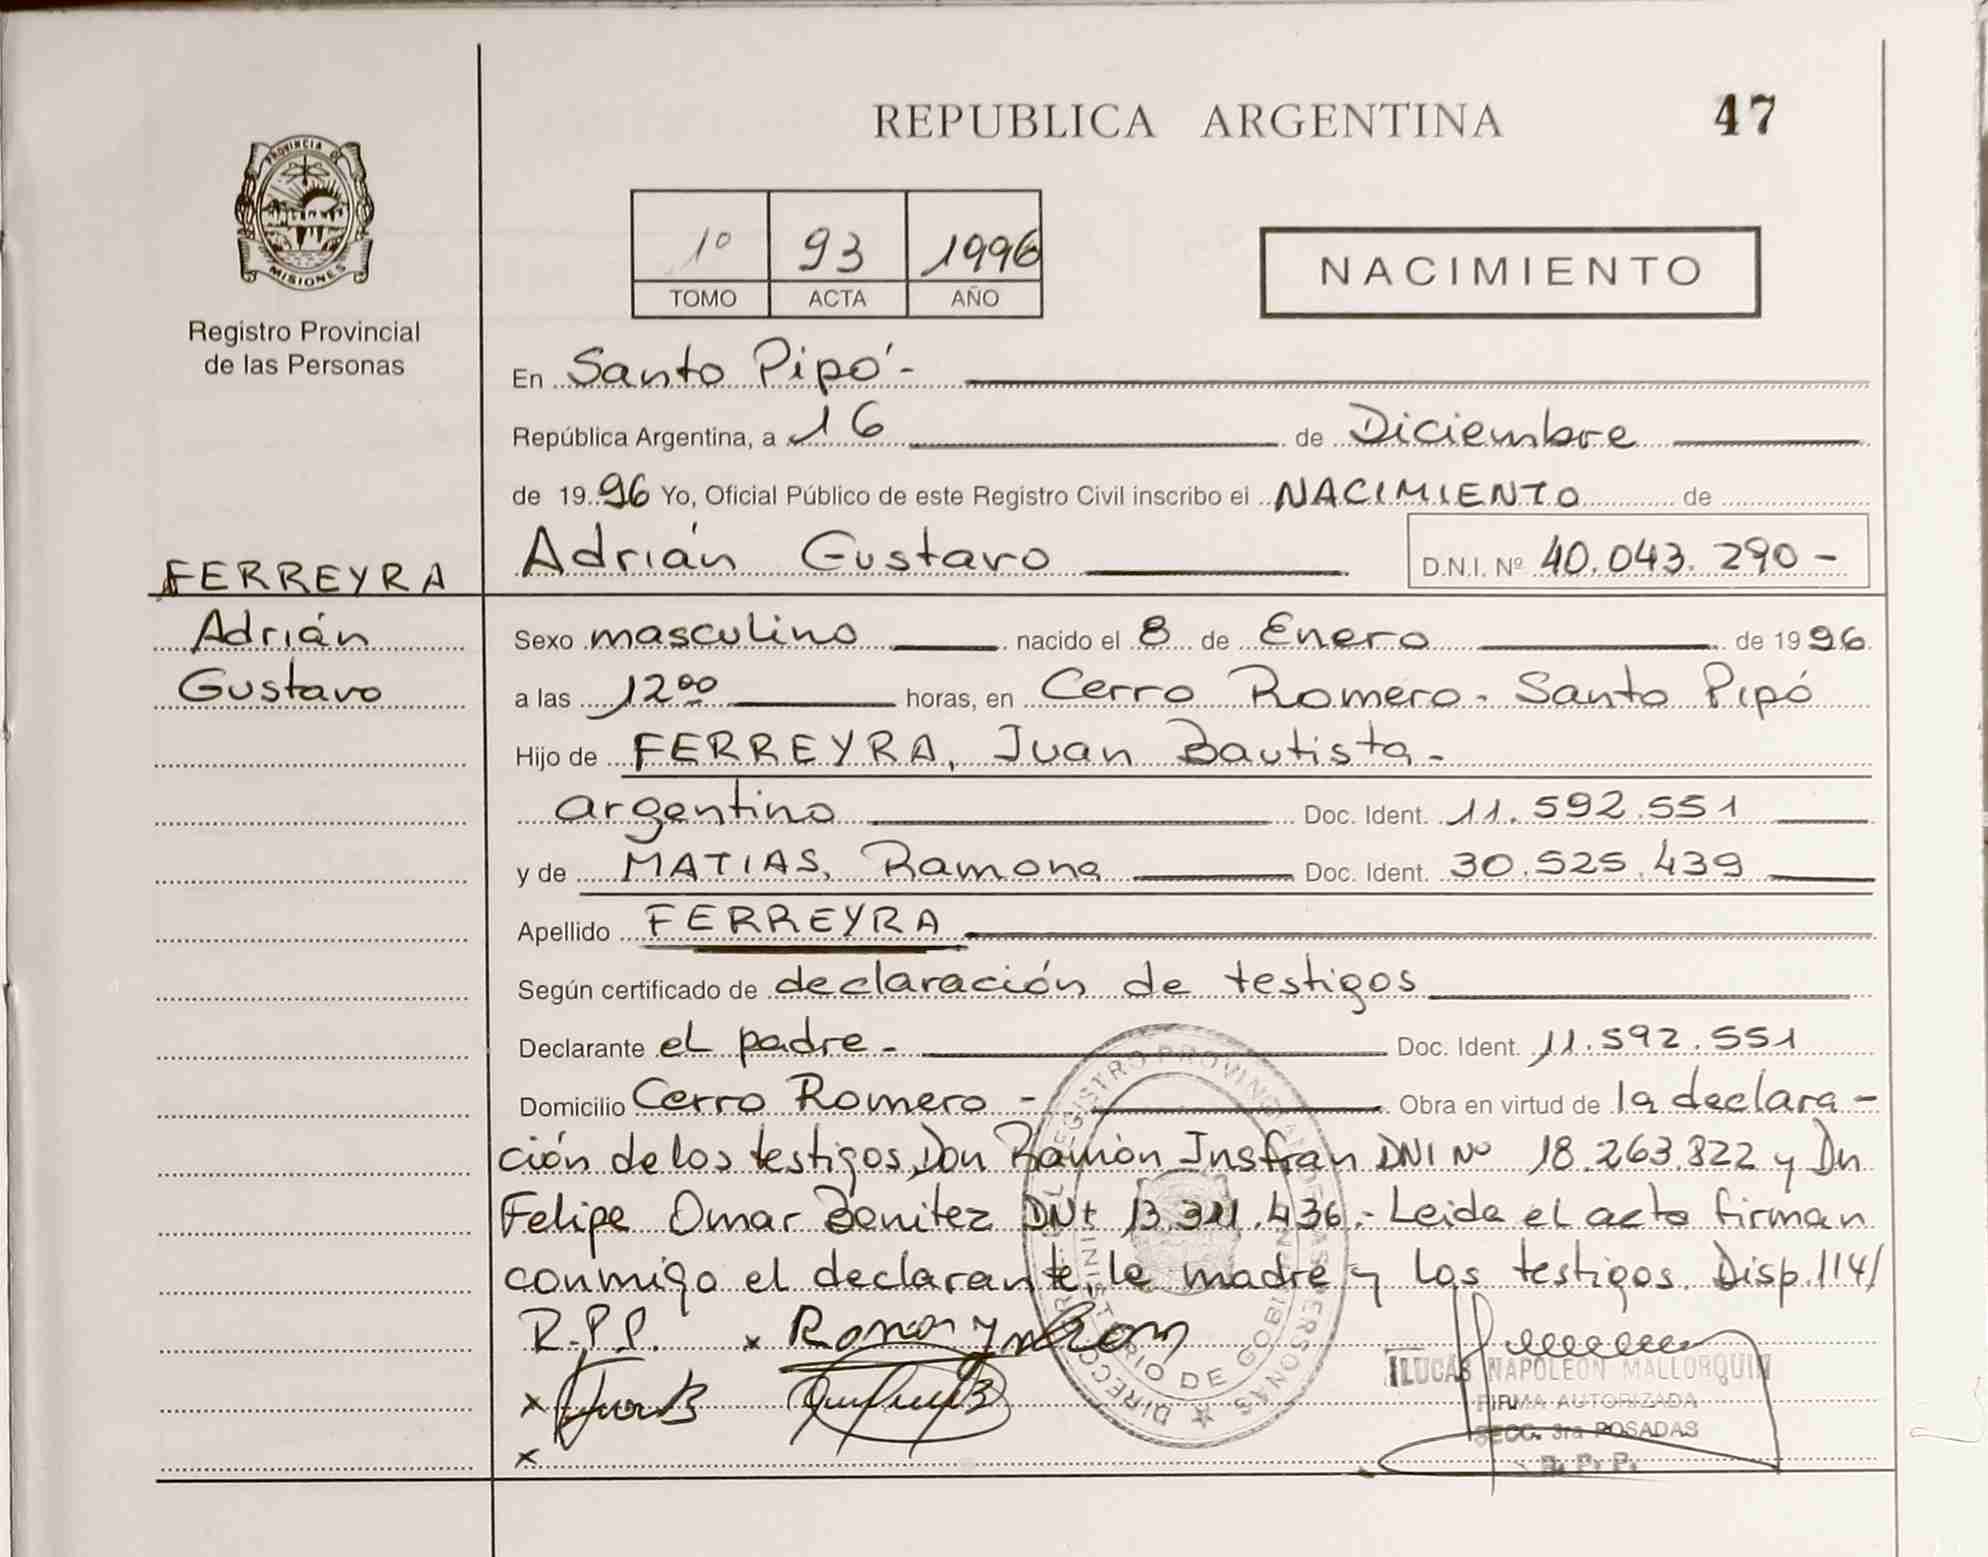 REPUBLICA ARGENTINA
47
PROVINCIA DE
MISIONES
Registro Provincial
de las Personas
1º 93 1996
TOMO ACTA AÑO
NACIMIENTO
En Santo Pipó -
República Argentina, a 16 de Diciembre
de 1996 Yo, Oficial Público de este Registro Civil inscribo el NACIMIENTO de
Adrián Gustavo D.N.I. Nº 40.043.290-
FERREYRA
Adrián
Gustavo
Sexo masculino nacido el 8 de Enero de 1996
a las 12⁰⁰ horas, en Cerro Romero - Santo Pipó
Hijo de FERREYRA, Juan Bautista -
argentino Doc. Ident. 11.592.551
y de MATIAS, Ramona Doc. Ident. 30.525.439
Apellido FERREYRA
Según certificado de declaración de testigos
Declarante el padre - Doc. Ident. 11.592.551
Domicilio Cerro Romero - Obra en virtud de la declara-
ción de los testigos, Don Ramón Insfran DNI Nº 18.263.822 y Dn
Felipe Omar Benitez DNI 13.311.436.- Leida el acta firman
conmigo el declarante, la madre y los testigos. Disp. 114/
R.P.P.
LUCAS NAPOLEON MALLORQUIN
FIRMA AUTORIZADA
SECC. 3ra POSADAS
R. P. P.